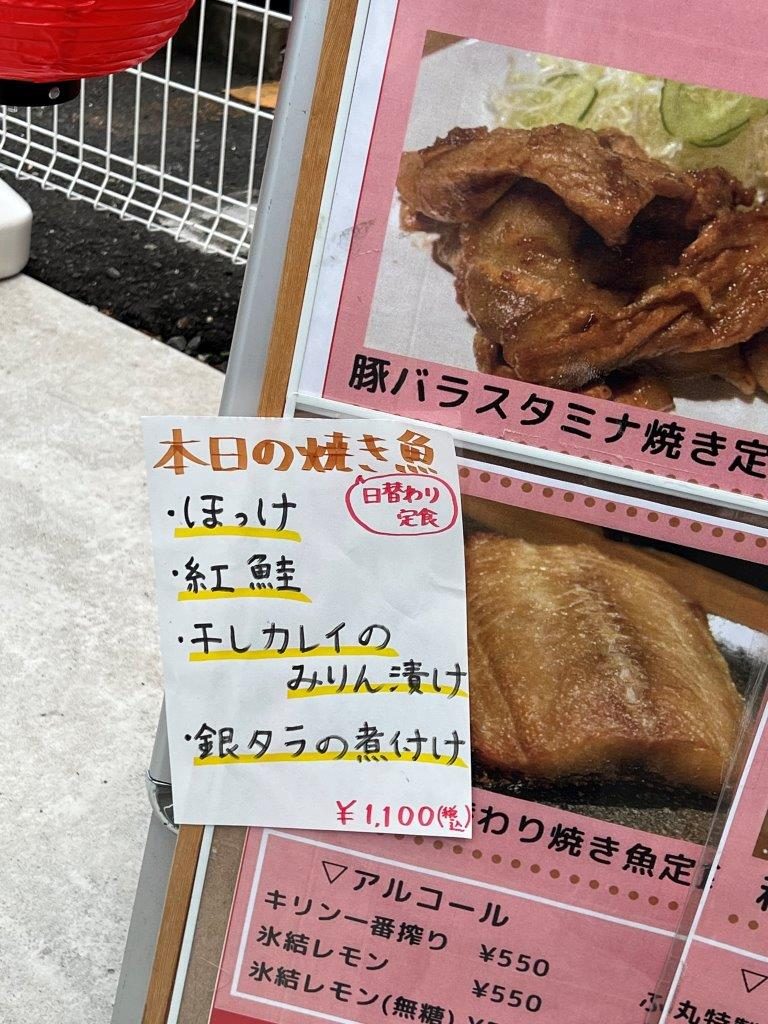 豚バラスタミナ焼き定
本日の焼き魚
日替わり
定食
・ほっけ
・紅鮭
・干しカレイの
みりん漬け
・銀タラの煮付け
¥1,100(税込)
替わり焼き魚定
▽アルコール
キリン一番搾り ¥550
氷結レモン ¥550
氷結レモン(無糖)
丸特製